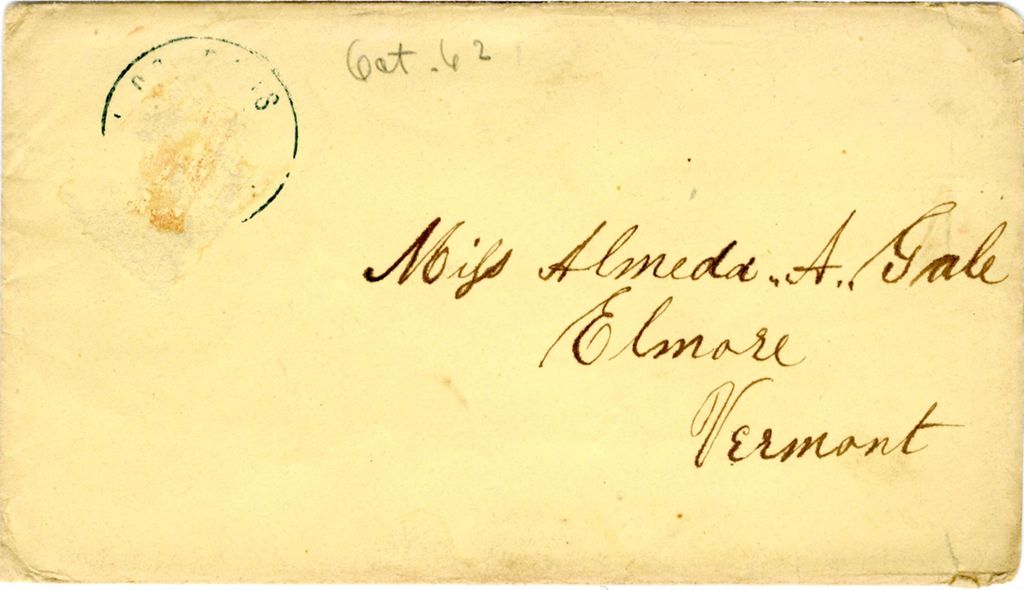 Oct. 62
Miss Almeda. A. Gale
Elmore
Vermont